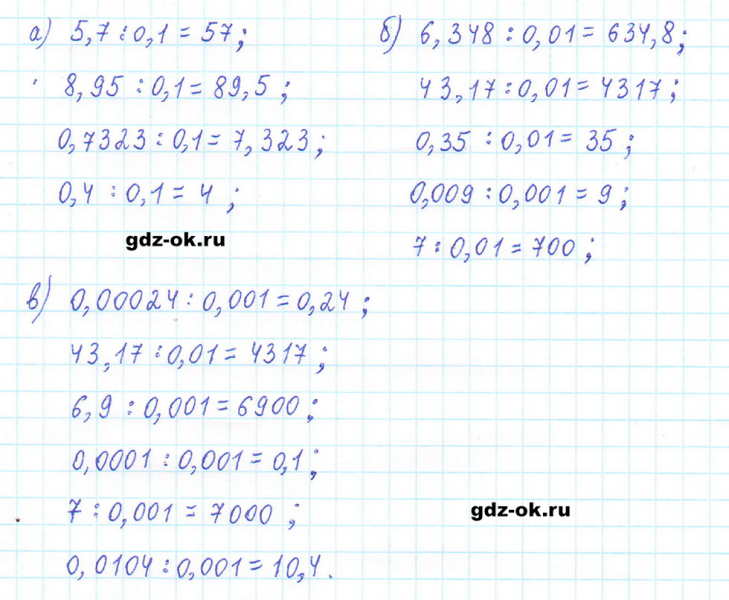 а) 5,7 : 0,1 = 57;
8,95 : 0,1 = 89,5;
0,7323 : 0,1 = 7,323;
0,4 : 0,1 = 4;
gdz-ok.ru
б) 6,348 : 0,01 = 634,8;
43,17 : 0,01 = 4317;
0,35 : 0,01 = 35;
0,009 : 0,001 = 9;
7 : 0,01 = 700;
в) 0,00024 : 0,001 = 0,24;
43,17 : 0,01 = 4317;
6,9 : 0,001 = 6900;
0,0001 : 0,001 = 0,1;
7 : 0,001 = 7000;
gdz-ok.ru
0,0104 : 0,001 = 10,4.